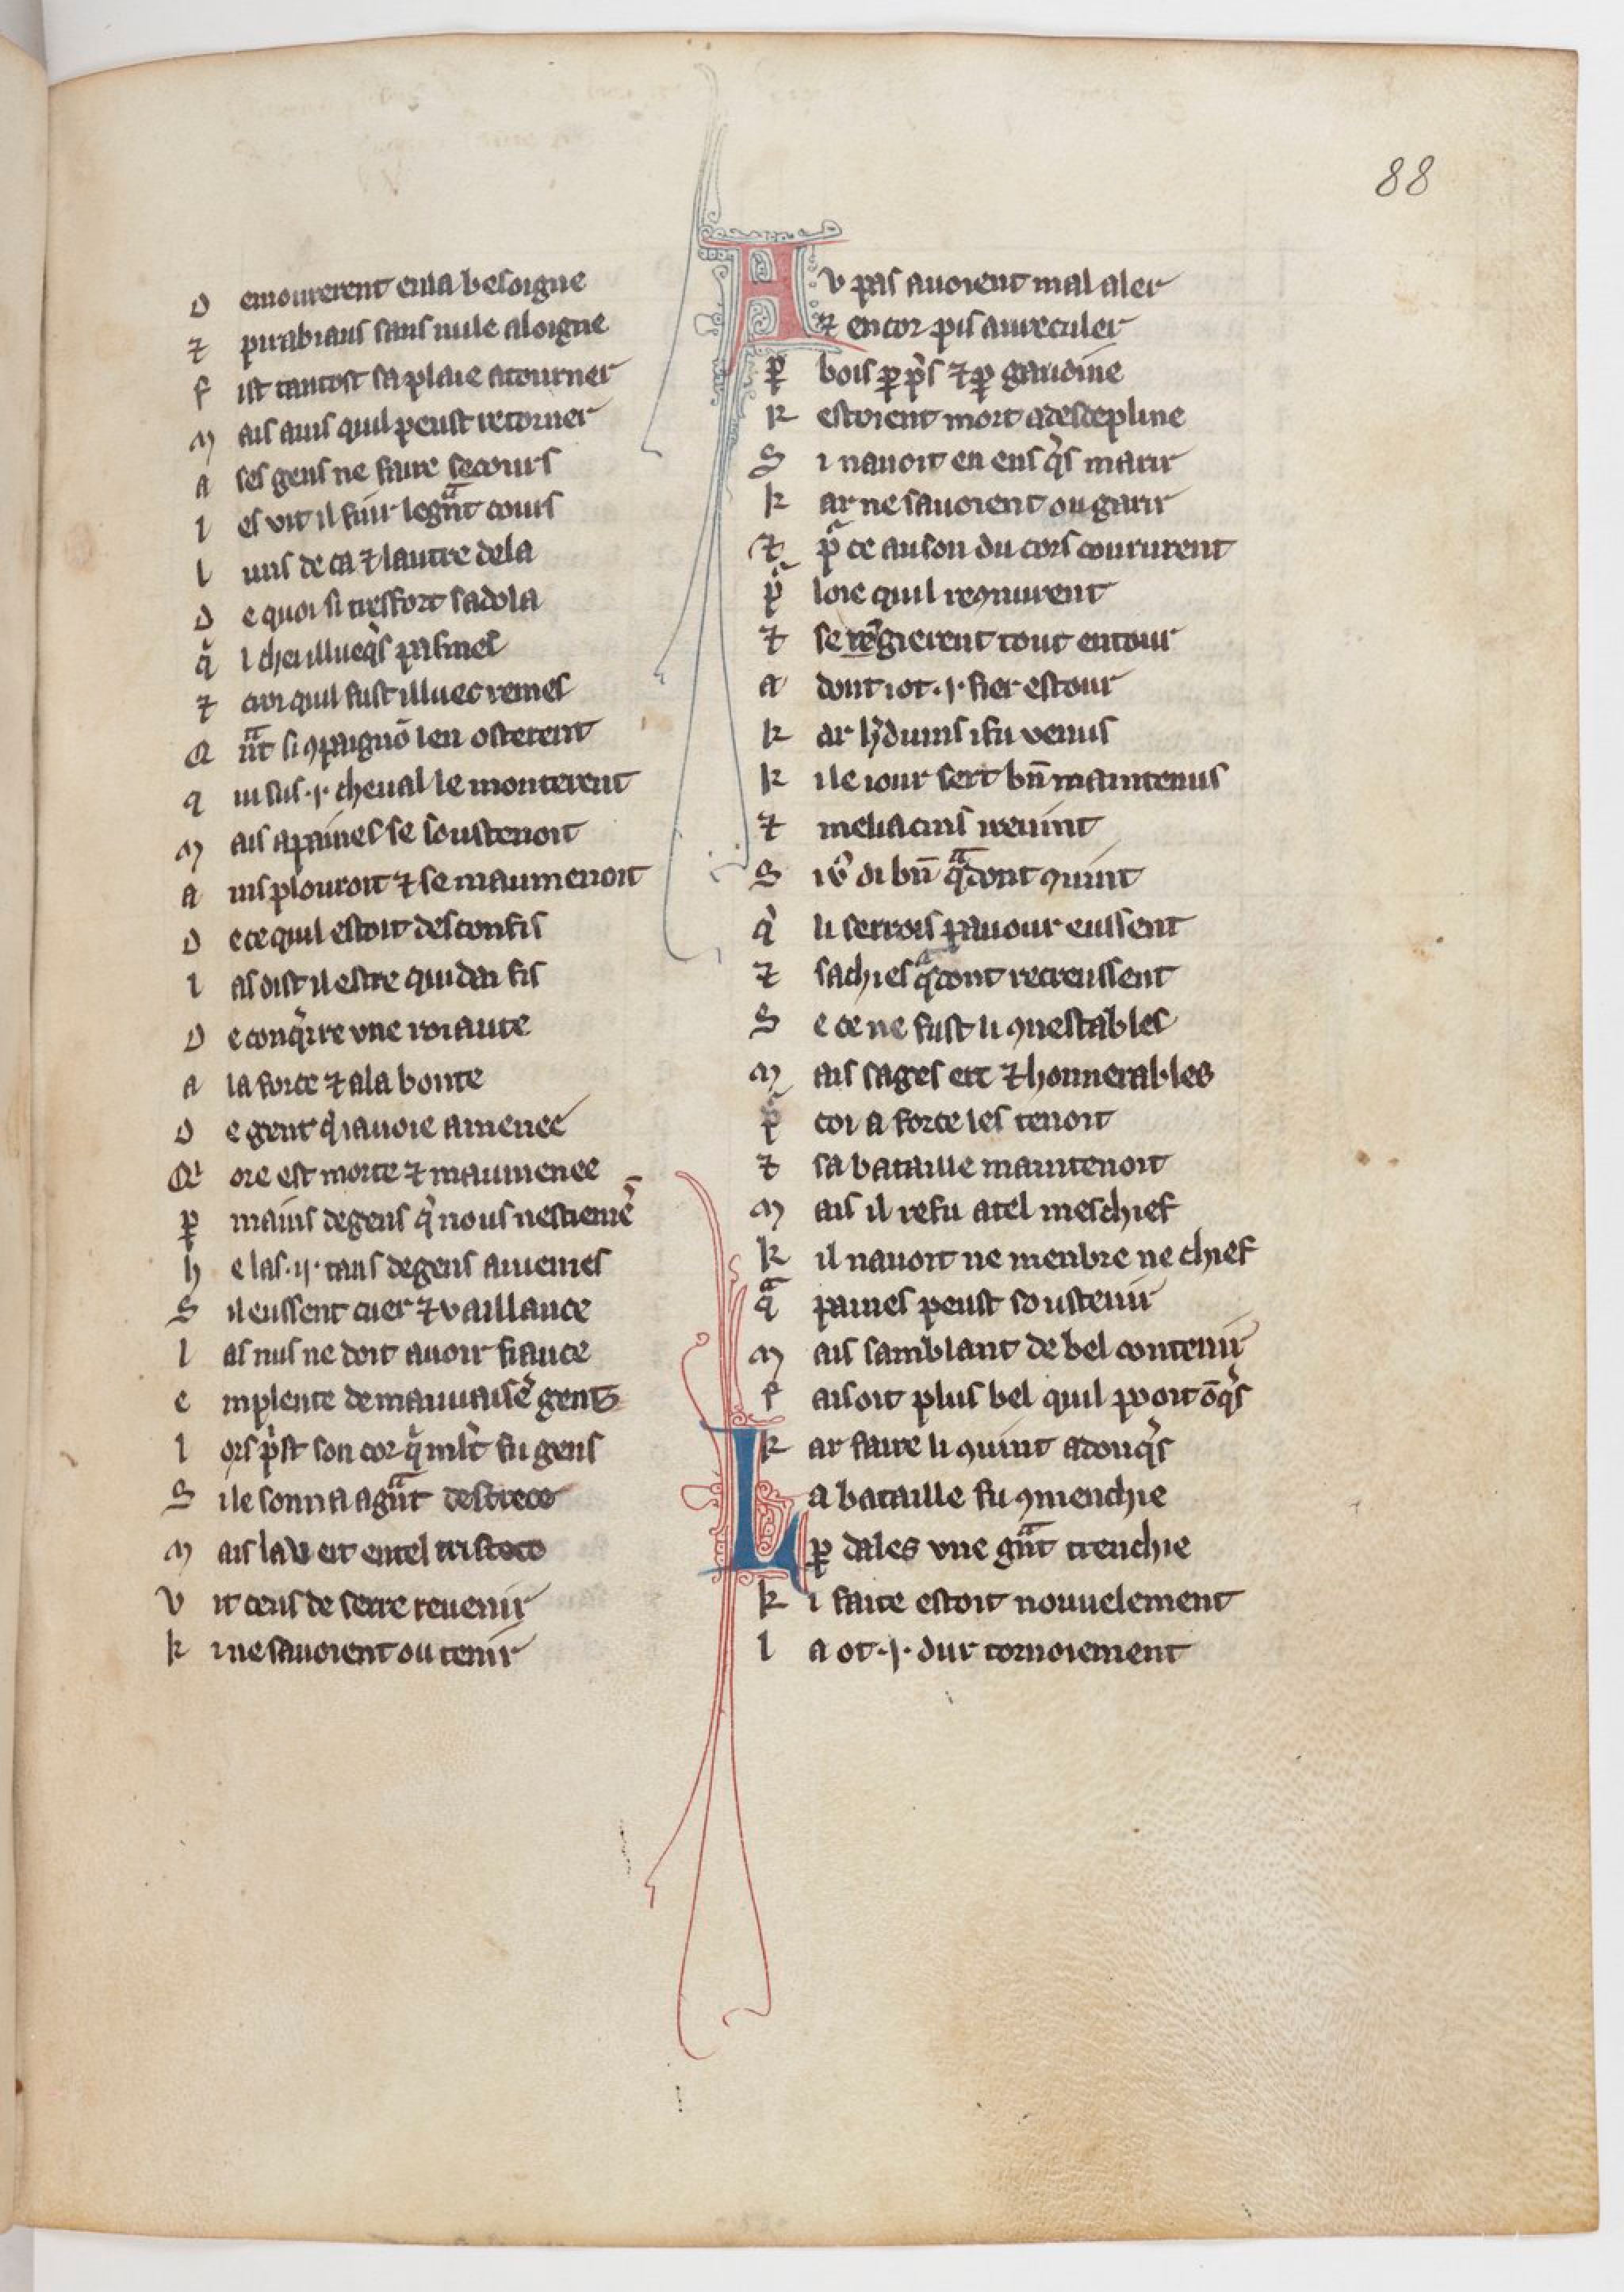 88
D emourerent en la besoigne
⁊ pirabiaus sans nule aloigne
F ist tantost sa plaie atourner
M ais ains quil peust retorner
A ses gens ne faire secours
L es vit il fuir le gͣnt cours
L uns de ca ⁊ lautre dela
D e quoi si tresfort sadola
qͥ l chei illueqͥs pasmes
⁊ cui quil fust illuec remes
Q ͣnt si ꝯpaignõ len osterent
Q ui sus .i. cheual le monterent
M ais a paines se soustenoit
A ins plouroit ⁊ se maumenoit
D e ce quil estoit desconfis
L as dist il estre quidai fis
D e conqͥrre vne roiaute
A la force ⁊ a la bonte
D e gent qͥ iauoie amenee
Q ore est morte ⁊ maumenee
ꝑ mains de gens qͥ nous nestiem̃
H e las .ij. tans de gens auiemes
S il eussent cuer ⁊ vaillance
L as nus ne doit auoir fiance
E nplente de mauuaise gent
L ors pͥst son cor qͥ ml̃t fu gens
S i le sonna a gͣnt destrece
M ais la v ert en tel tristece
V it ceus de serre reuenir
K i ne sauoient ou tenir
A v pas auoient mal aler
⁊ encor pis au reculer
ꝑ bois ꝑ pͥs ⁊ ꝑ gaudine
K estoient mort a desdepline
S i nauoit en eus qͥs marir
K ar ne sauoient ou garir
⁊ pͣ ce au son du cors coururent
pͣ loie quil reꝯnurent
⁊ se rẽgierent tout entour
A dont i ot .i. fier estour
K ar h̃duins i fu venus
K i le iour sert bñ maintenus
⁊ meliacins i reuint
S i vͦ di bñ qͣdont ꝯuint
qͥ li serrois paour eussent
⁊ sachies qͣdont recreussent
S e ce ne fust li ꝯnestables
M ais sages ert ⁊ honnerables
pͣ coi a force les tenoit
⁊ sa bataille maintenoit
M ais il refu a tel meschief
K il nauoit ne menbre ne chief
qͣ paines peust soustenir
M ais samblant de bel contenir
F aisoit plus bel quil pooit õqͥs
K ar faire li ꝯuint adonqͥs
L a bataille fu ꝯmenchie
ꝑ dales vne gͣnt trenchie
K i faite estoit nouuelement
L a ot .i. dur tornoiement